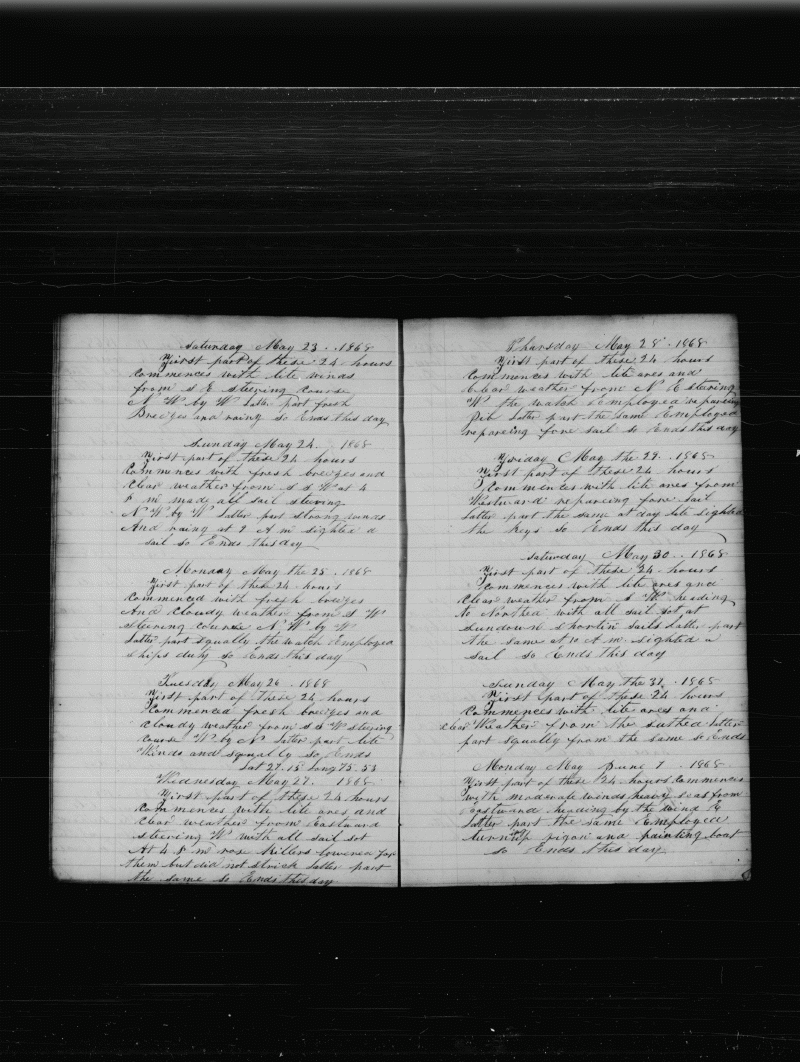 Saturday May 23. 1868
First part of these 24 hours
commences with lite winds
from S E stering course
N W by W Latter part fresh
Breizes and rainy so Ends this day
Sunday May 24. 1868
First part of these 24 hours
Commences with fresh breizes and
clear weather from S S W at 4
P m made all sail stering
N W by W Latter part strong winds
And raing at 9 A m sighted a
sail so Ends this day
Monday May the 25. 1868
First part of these 24 hours
commenced with fresh breizes
And cloudy weather from S W
stering course N W by W
Latter part squally the watch Employed
ships duty so Ends this day
Tuesday May 26. 1868
First part of these 24 hours
Commenced fresh breizes and
cloudy weather from S S W stering
course W by N Latter part lite
Winds and squally so Ends
Lat 27.15 Long 75.53
Wednesday May 27. 1868
First part of these 24 hours
Commences with lite ares and
clear weather from Eastward
stering W with all sail sot
At 4 P m rose killers lowered for
them but did not strick Latter part
the same so Ends this day
Thursday May 28. 1868
First part of these 24 hours
Commences with lite ares and
Clear weather from N E stering
W the watch Employed reparcing
Gib Latter part the same Employed
reparcing fore sail so Ends this day
Friday May the 29. 1868
First part of these 24 hours
Commences with lite ares from
Westward reparcing fore sail
Latter part the same at day lite sighted
the keys so Ends this day
Saturday May 30. 1868
First part of these 24 hours
commences with lite ares and
Clear weather from S W heading
to Northed with all sail sot at
sundown shortin sails Latter part
the same at 10 A m sighted a
sail so Ends this day
Sunday May the 31. 1868
First part of these 24 hours
Commences with lite ares and
clear Weather from the suthed Latter
part squally from the same so Ends
Monday May June 1. 1868
First part of these 24 hours Commences
with moderate winds heavy seas from
Eastward heading by the wind &
Latter part the same Employed
turning up rigon and painting boat
so Ends this day